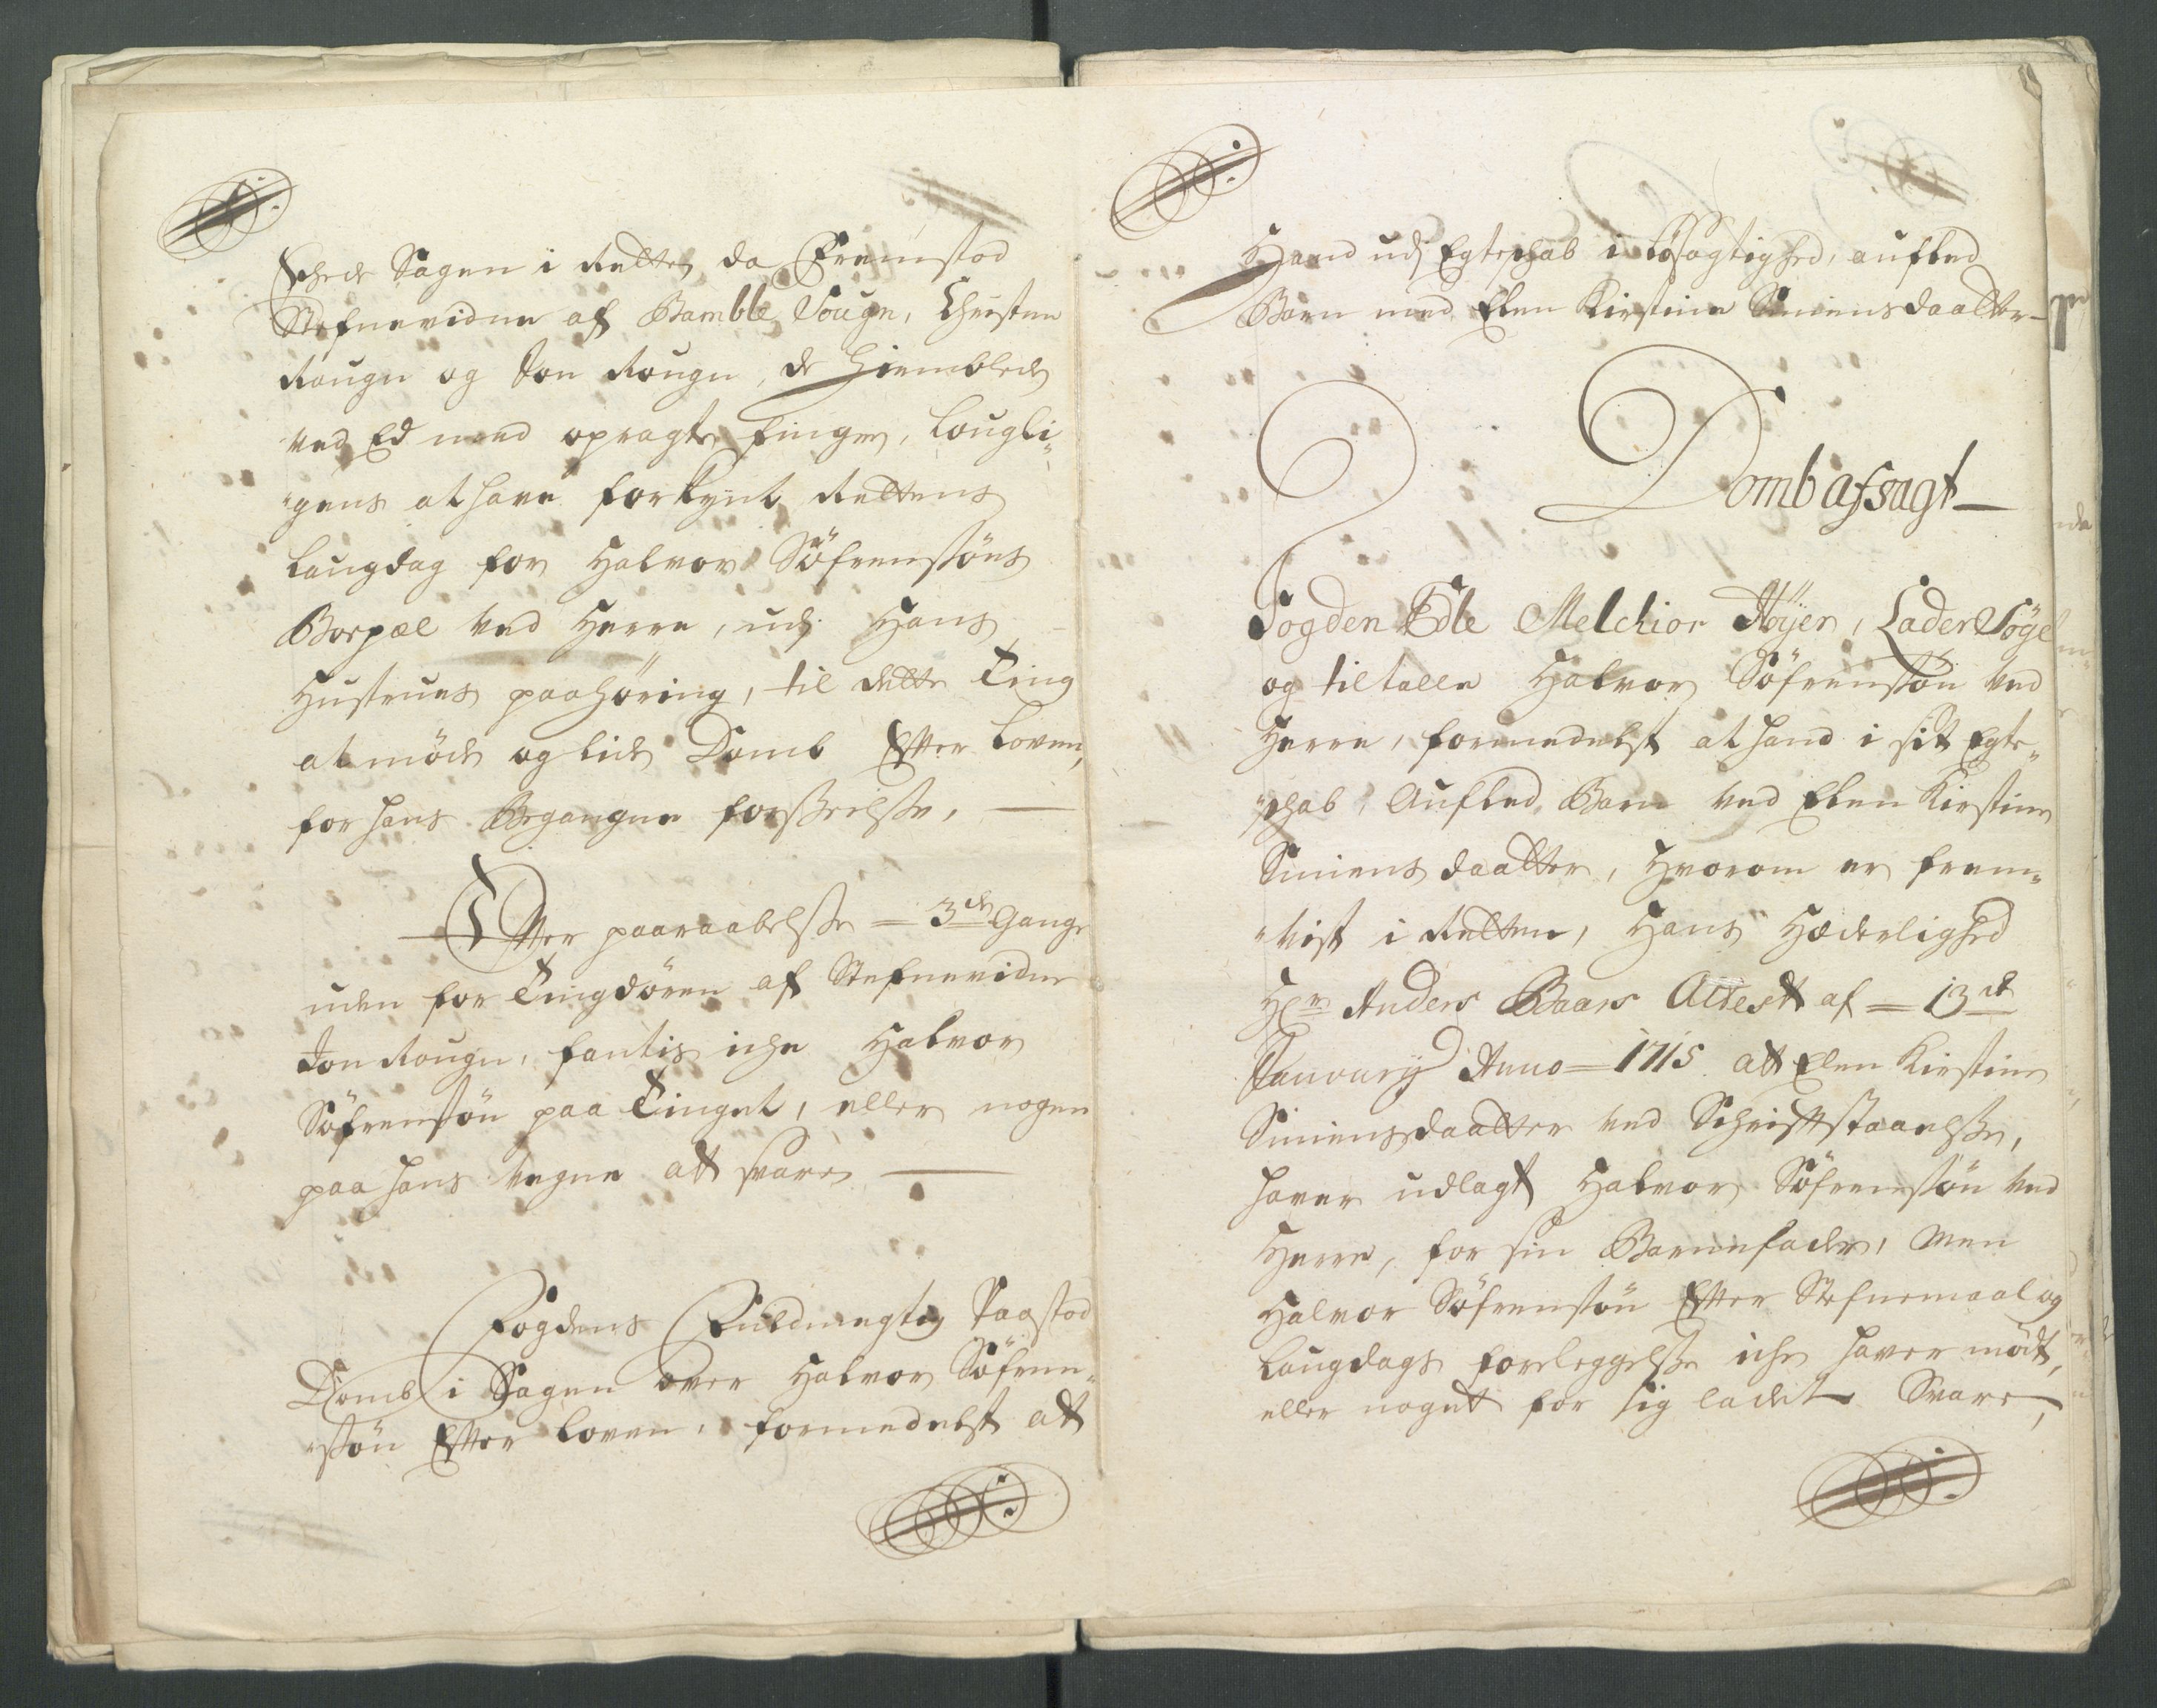 Schede Sagen i Retten, da Fremstod
Stefnevidne af Bamble Sougn, Christen
Rougn og Jon Rougn, de Hiemblede
ved Ed med opragte finger, Lougli„
„gens at have forkynt Rettens
Laugdag for Halvor Söfrensöns
Boepæl ved Herre, udj Hans
Hustrues paahöring, til dette Ting
at möde og lide Domb Efter Loven,
for hans Begangne forseelsse,
Efter paaraabelsse = 3de Gange
uden for Tingdören af Stefnevidne
Jon Rougn, fantis iche Halvor
Söfrensön paa Tinget, eller nogen
paa hans vegne att svare
Fogdens Fuldmegtig Paastod
Domb i Sagen over Halvor Söfren„
„sön Efter Loven, formedelst att
Hand udj Egteschab i Lösagtighed, aufled
Barn med Elen Kirstine Simensdaatter
Domb afsagt
Fogden Edle Melchior Höyer, Lader Söge
og tiltalle Halvor Söfrensön ved
Herre, formedelst at hand i sit Egte„
„schab, Aufled Barn ved Elen Kirstine
Simens daatter, Hvorom er frem„
„vist i Retten, Hans Hæderlighed
Hr Anders Baars Attest af = 13de
January Anno = 1715. att Elen Kirstine
Simensdaatter ved Schriftstaaelsse,
haver udlagt Halvor Söfrensön ved
Herre, for sin Barnefader, Men
Halvor Söfrensön Efter Stefnemaal og
Laugdags foreleggelsse iche haver mödt,
eller noget for sig ladet Svare,